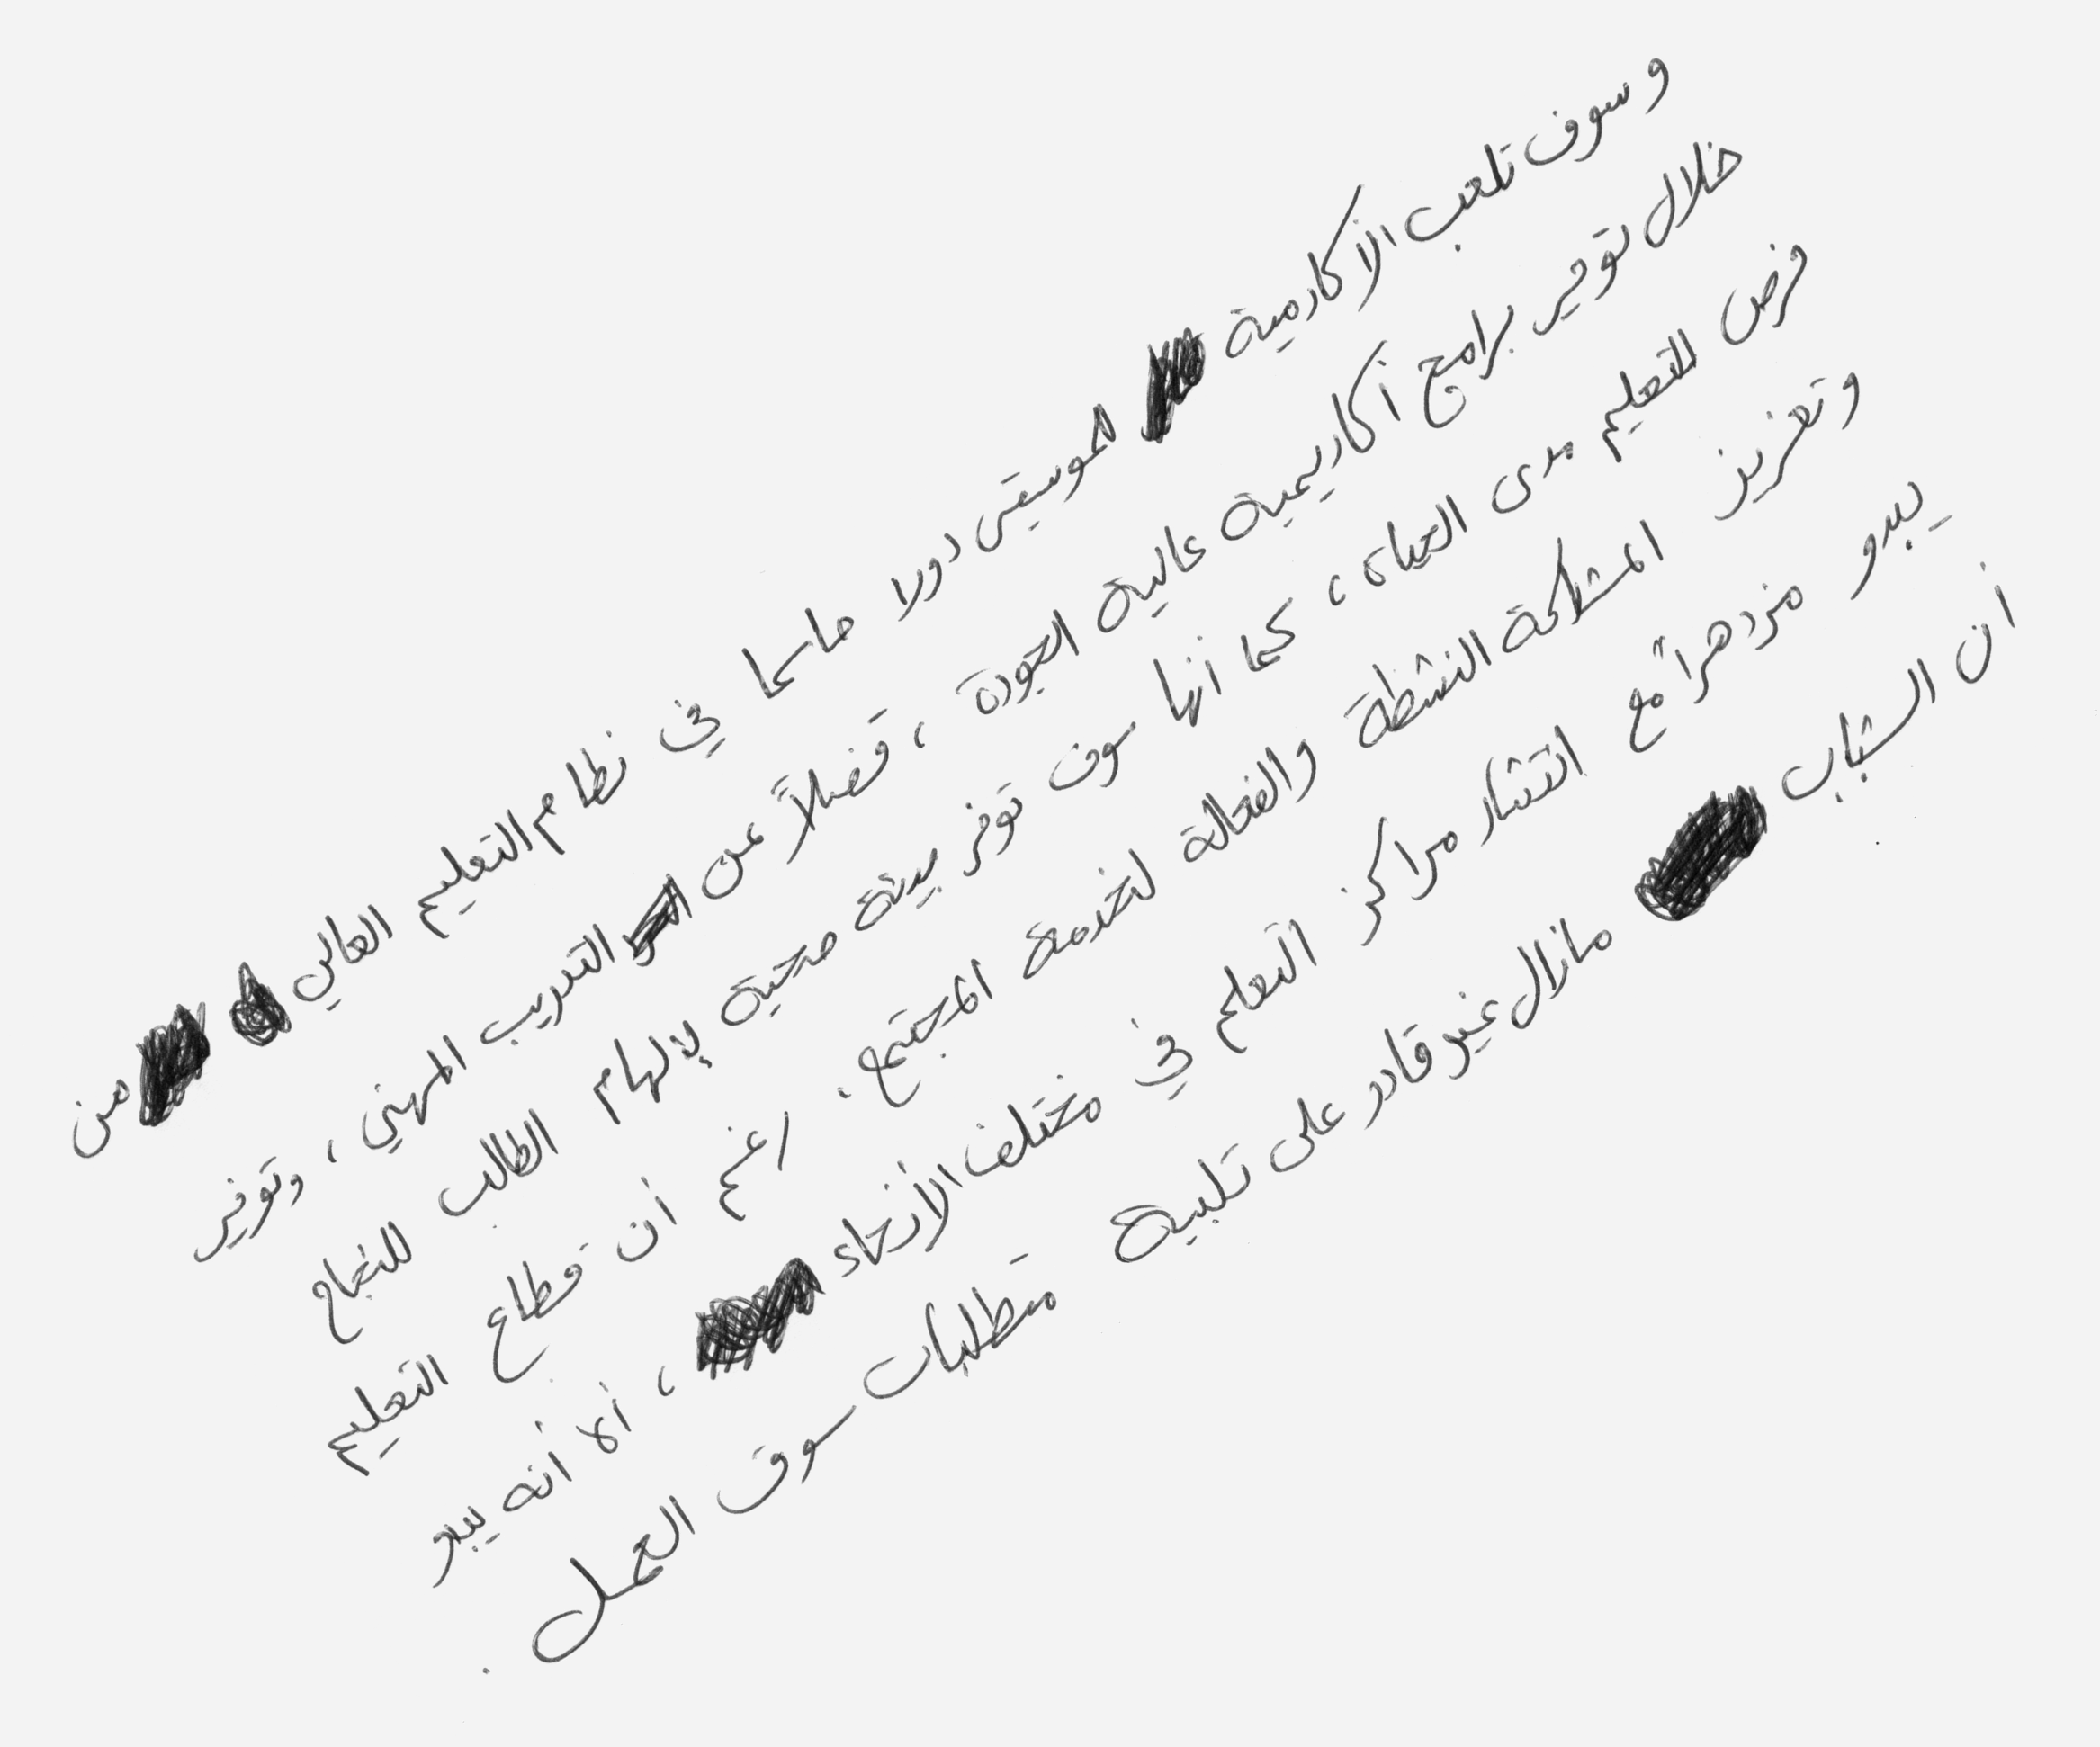 وسوف تلعب الأكادمية الموسيقى دورا حاسما في نظام التعليم العالي من
خلال توفير برامج أكاديمية عالية الجودة ، فضلاً عن التدريب المهني ، وتوفير
فرص التعليم مدى الحياة ، كما أنها سوف توفر بيئة صحية لإلهام الطالب للنجاح
وتعزيز المشاركة النشطة والفعالة لخدمة المجتمع . رغم أن قطاع التعليم
يبدو مزدهراً مع انتشار مراكز التعلم في مختلف الأنحاء ، ألا أنه يبدو
أن الشباب مازال غير قادر على تلبية متطلبات سوق العمل .